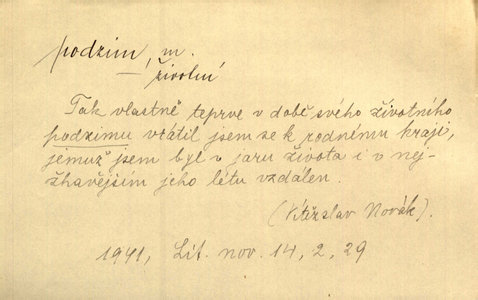 podzim, m.
životní
Tak vlastně teprve v době svého životního
podzimu vrátil jsem se k rodnému kraji,
jemuž jsem byl v jaru života i v nej-
žhavějším jeho létu vzdálen.
(Vítězslav Novák).
1941, Lit. nov. 14, 2, 29